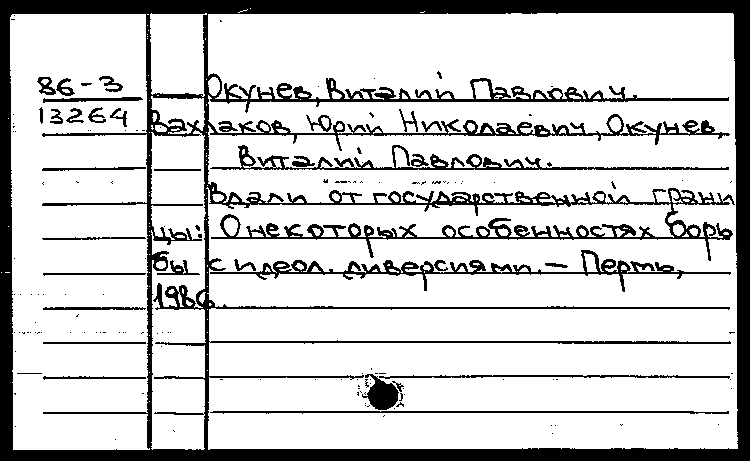 86-3 Окунев, Виталий Павлович.
13264 Вахлаков, Юрий Николаевич, Окунев,
Виталий Павлович.
Вдали от государственной грани
цы: О некоторых особенностях борь
бы с идеол. диверсиями. – Пермь,
1986.